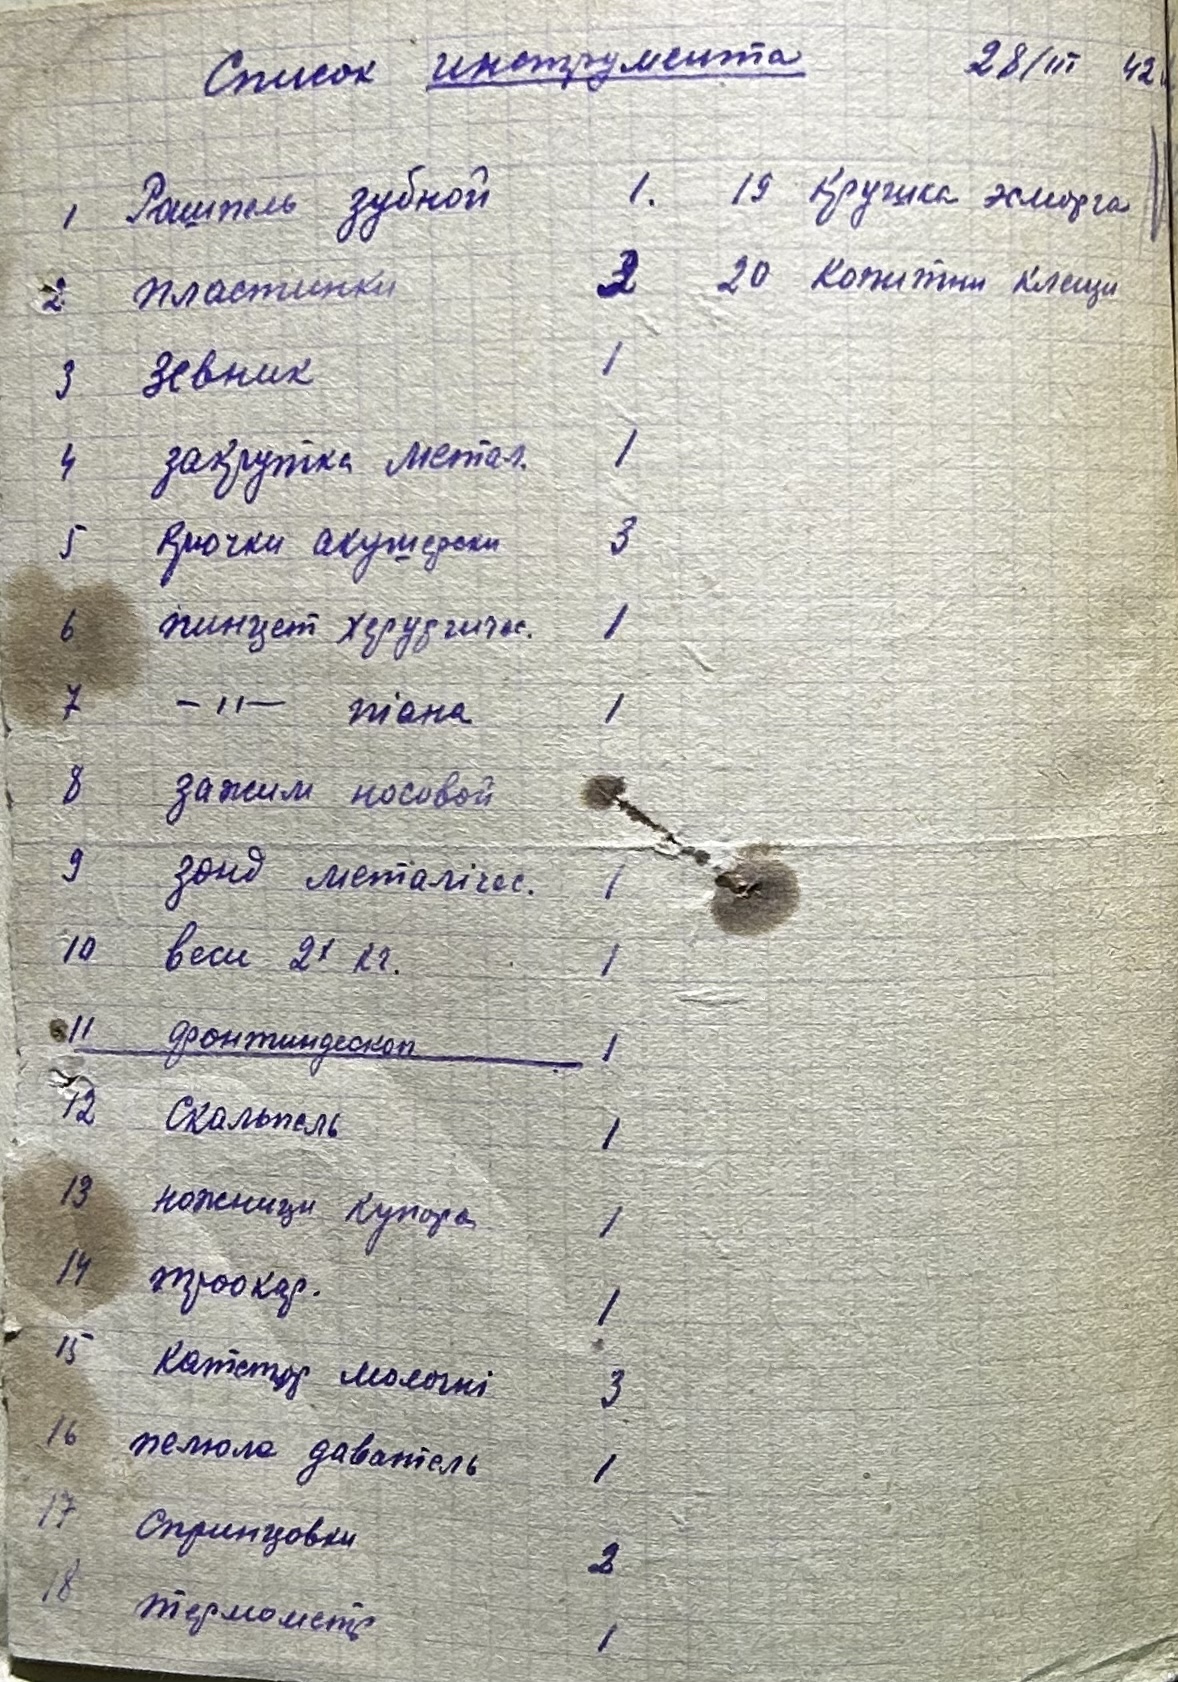 Список инструмента 28/III 42
1 Рашпель зубной 1.
2 пластинки 2
3 Зевник 1
4 закрутка метал. 1
5 Крючки акушерски 3
6 пинцет херургичес. 1
7 –"– піана 1
8 зажим носовой
9 зонд металічес. 1
10 веси 2х кг. 1
11 фронтиндескоп 1
12 Скальпель 1
13 ножници купора 1
14 троокар. 1
15 катетор молочні 3
16 пелюла даватель 1
17 Спринцовки 2
18 термометр 1
19 Кружка эсморга
20 Копитни клещи